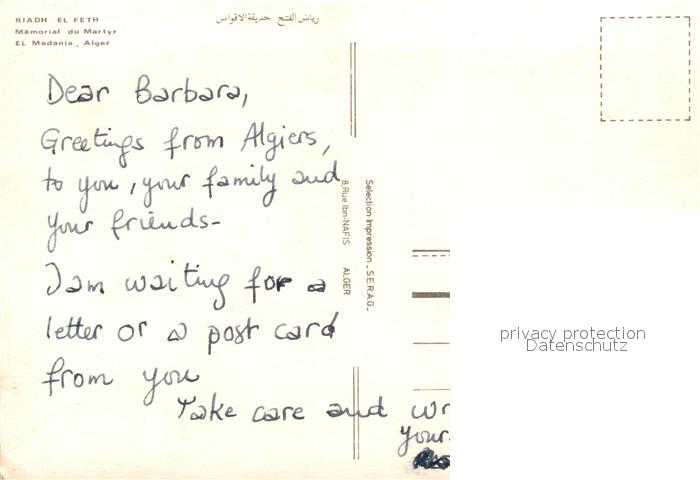 RIADH EL FETH
Mémorial du Martyr
EL Madania, Alger
رياض الفتح حديقة الاقواس
Dear Barbara,
Greetings from Algiers,
to you, your family and
your friends-
I am waiting for a
letter or a post card
from you
Take care and wr
your
Selection Impression _ S.E.R.A.G_
8,Rue Ibn-NAFIS ALGER
privacy protection
Datenschutz